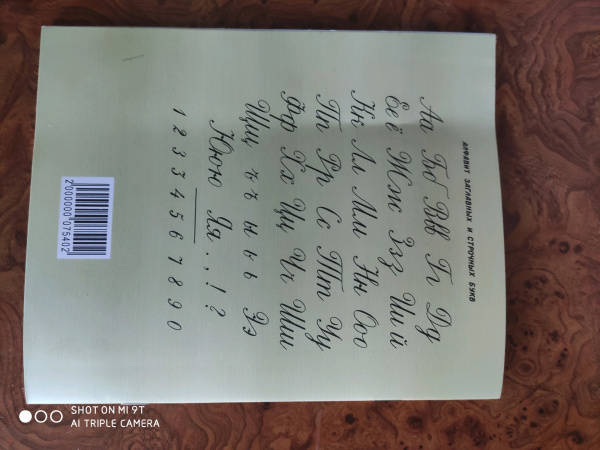 АЛФАВИТ ЗАГЛАВНЫХ И СТРОЧНЫХ БУКВ
Аа Бб Вв Гг Дд
Её Жж Ззз Ии й
Кк Лл Мм Нн Оо
Пп Рр Сс Тт Уу
Фф Хх Цц Чч Шш
Щщ ъ ъ ы ь ь Ээ
Ююю Яя . , ! ?
1 2 3 3 4 5 6 7 8 9 0
2000000075402
SHOT ON MI 9T
AI TRIPLE CAMERA